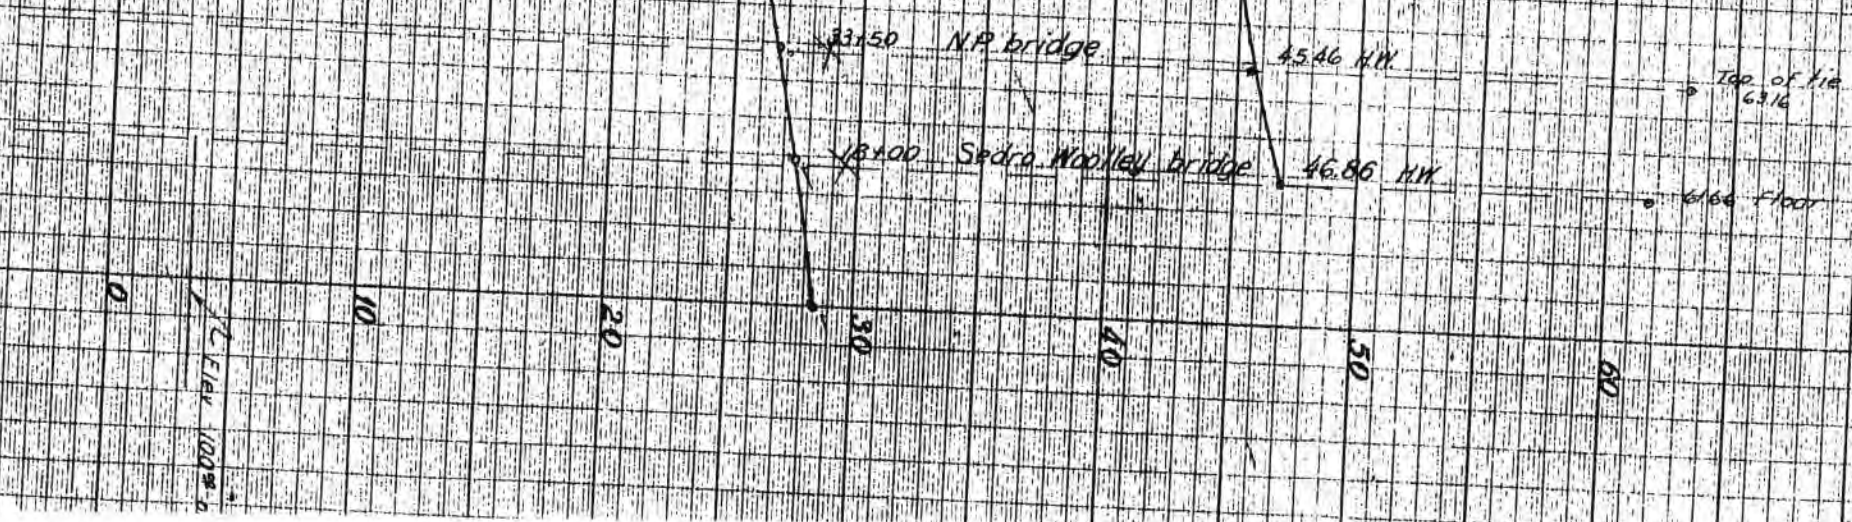 33+50 N.P. bridge
45.46 H.W.
Top of tie
63.16
18+00 Sedro Woolley bridge
46.86 H.W.
61.66 Floor
0
10
20
30
40
50
60
Elev